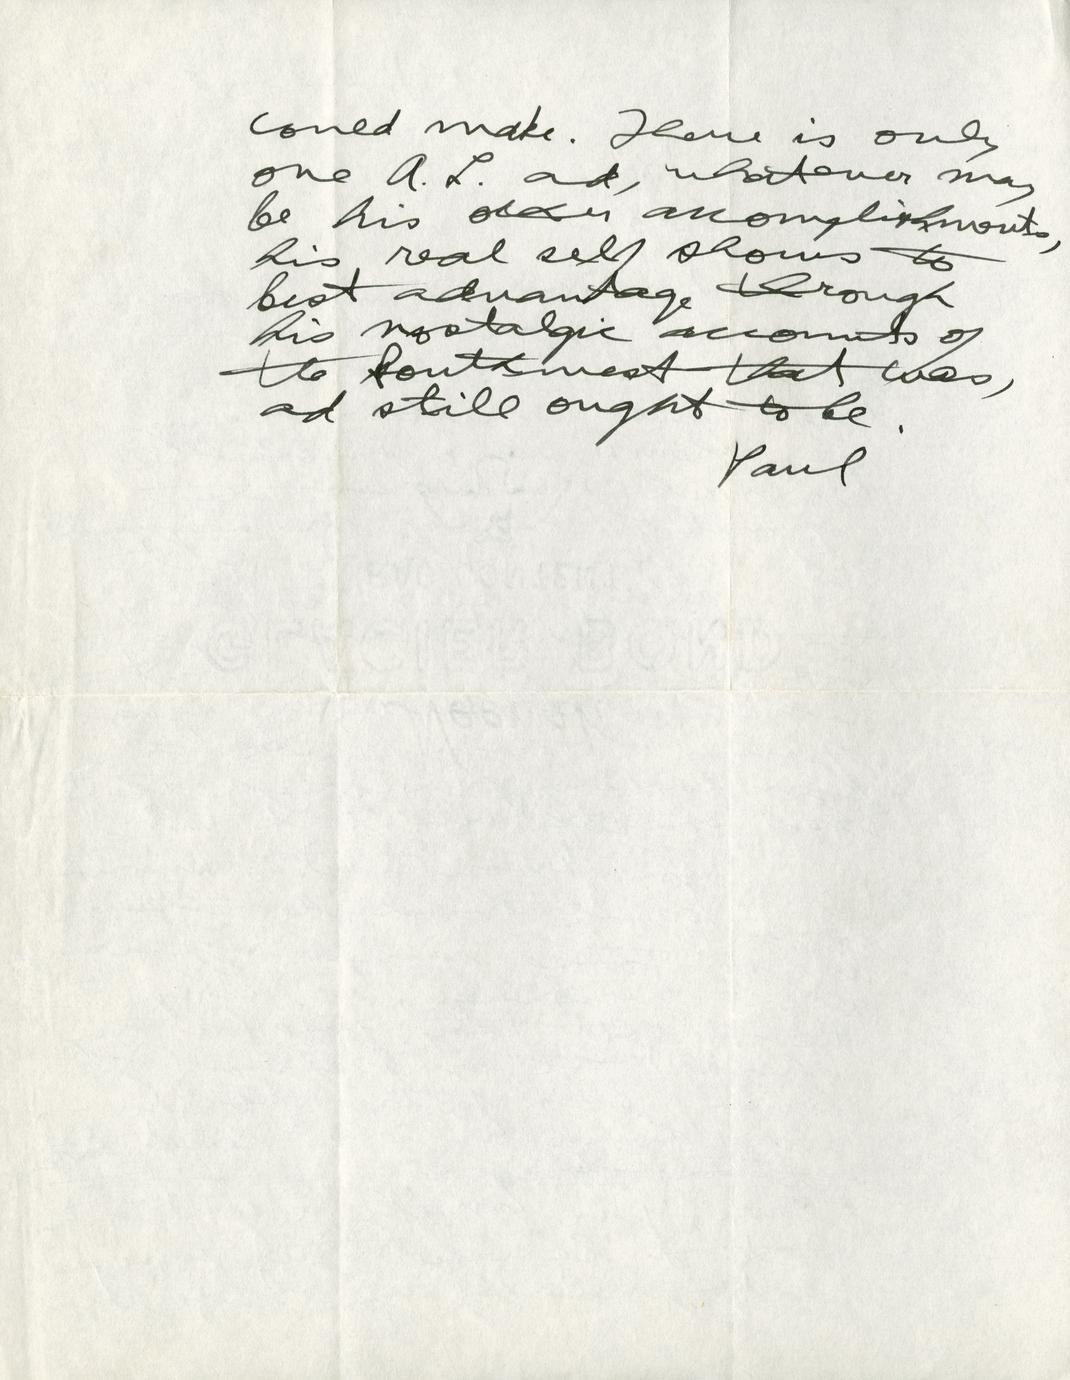 could make. There is only
one A. L. ad, whatever may
be his other accomplishments,
his real self shows to
best advantage through
his nostalgic accounts of
the Southwest that was,
ad still ought to be.
Paul